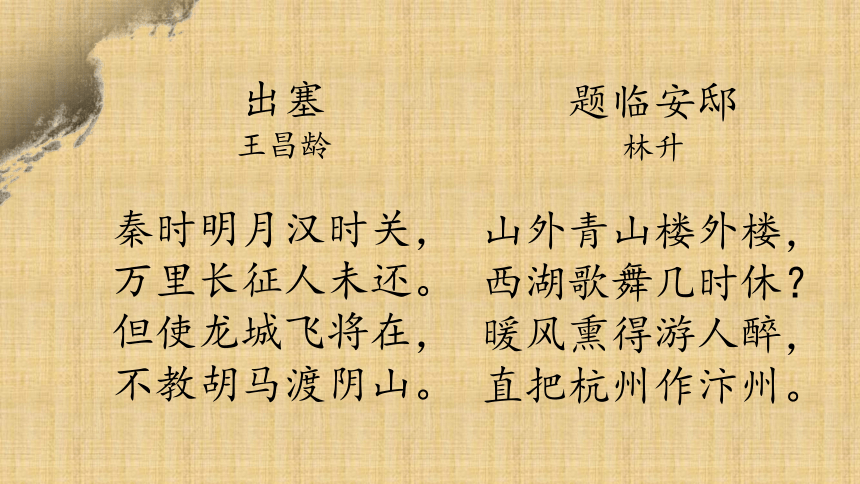 出塞
王昌龄
秦时明月汉时关，
万里长征人未还。
但使龙城飞将在，
不教胡马渡阴山。
题临安邸
林升
山外青山楼外楼，
西湖歌舞几时休？
暖风熏得游人醉，
直把杭州作汴州。